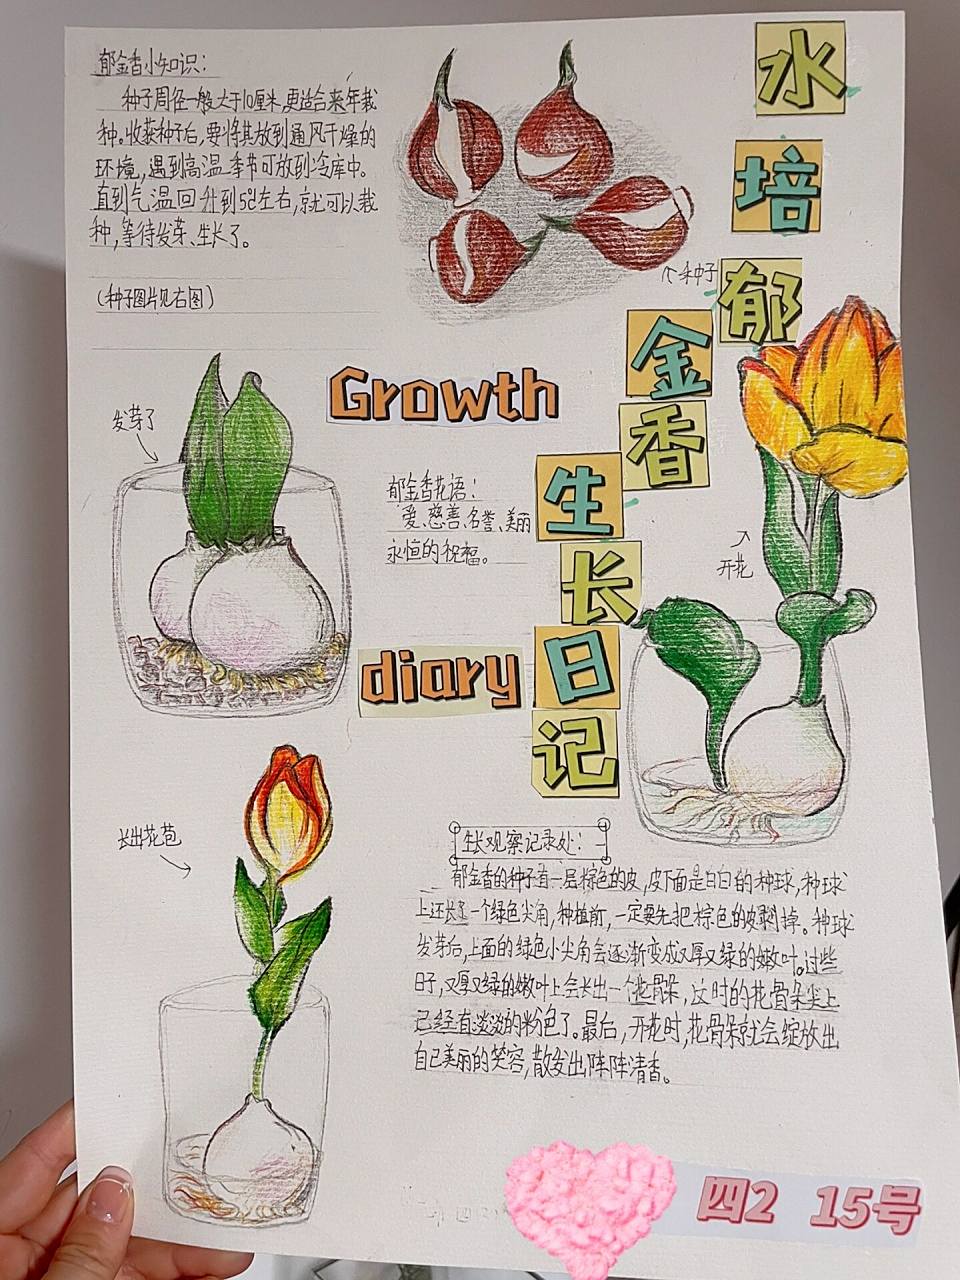 水培郁金香生长日记
郁金香小知识：
种子周径一般大于10厘米,更适合来年栽
种。收获种子后,要将其放到通风干燥的
环境,遇到高温季节可放到冷库中。
直到气温回升到5℃左右,就可以栽
种,等待发芽、生长了。
(种子图片见右图)
个种子
Growth
发芽了
郁金香花语：
爱、慈善、名誉、美丽
永恒的祝福。
开花
diary
长出花苞
生长观察记录处：
郁金香的种子有一层棕色的皮,皮下面是白白的种球,种球
上还长了一个绿色尖角,种植前,一定要先把棕色的皮剥掉。种球
发芽后,上面的绿色小尖角会逐渐变成又厚又绿的嫩叶。过些
日子,又厚又绿的嫩叶上会长出一个花骨朵,这时的花骨朵尖上
已经有淡淡的粉色了。最后,开花时,花骨朵就会绽放出
自己美丽的笑容,散发出阵阵清香。
四2 15号